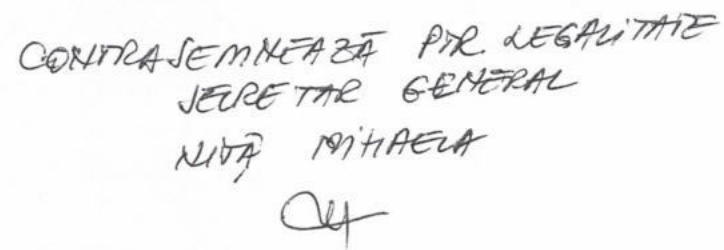 CONTRASEMNEAZĂ PTR. LEGALITATE
SECRETAR GENERAL
NIȚĂ MIHAELA